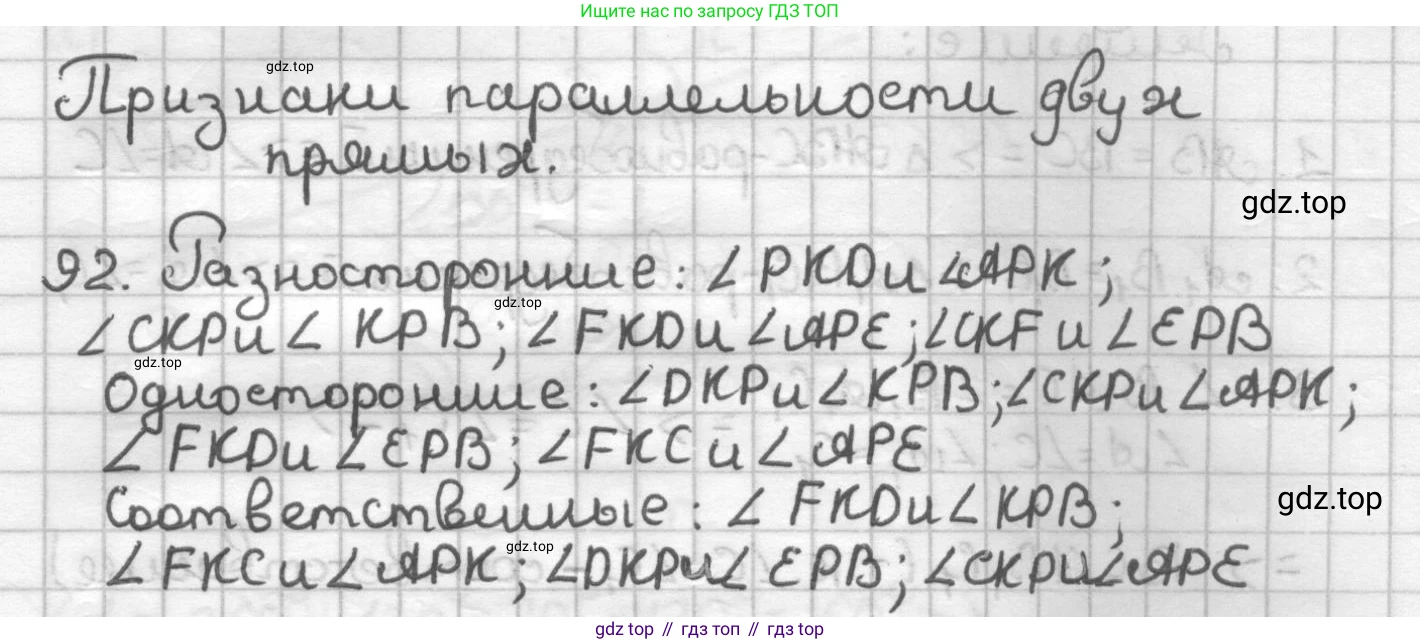 Ищите нас по запросу ГДЗ ТОП
gdz.top
Признаки параллельности двух
прямых.
gdz.top
92. Разносторонние: ∠PKD и ∠APK;
gdz.top
∠CKP и ∠ KPB; ∠FKD и ∠APE; ∠CKF и ∠EPB
gdz.top
Односторонние: ∠DKP и ∠KPB; ∠CKP и ∠APK;
∠FKD и ∠EPB; ∠FKC и ∠APE
gdz.top
Соответственные: ∠FKD и ∠KPB;
gdz.top
∠FKC и ∠APK; ∠DKP и ∠EPB; ∠CKP и ∠APE
gdz top // гдз топ // gdz.top